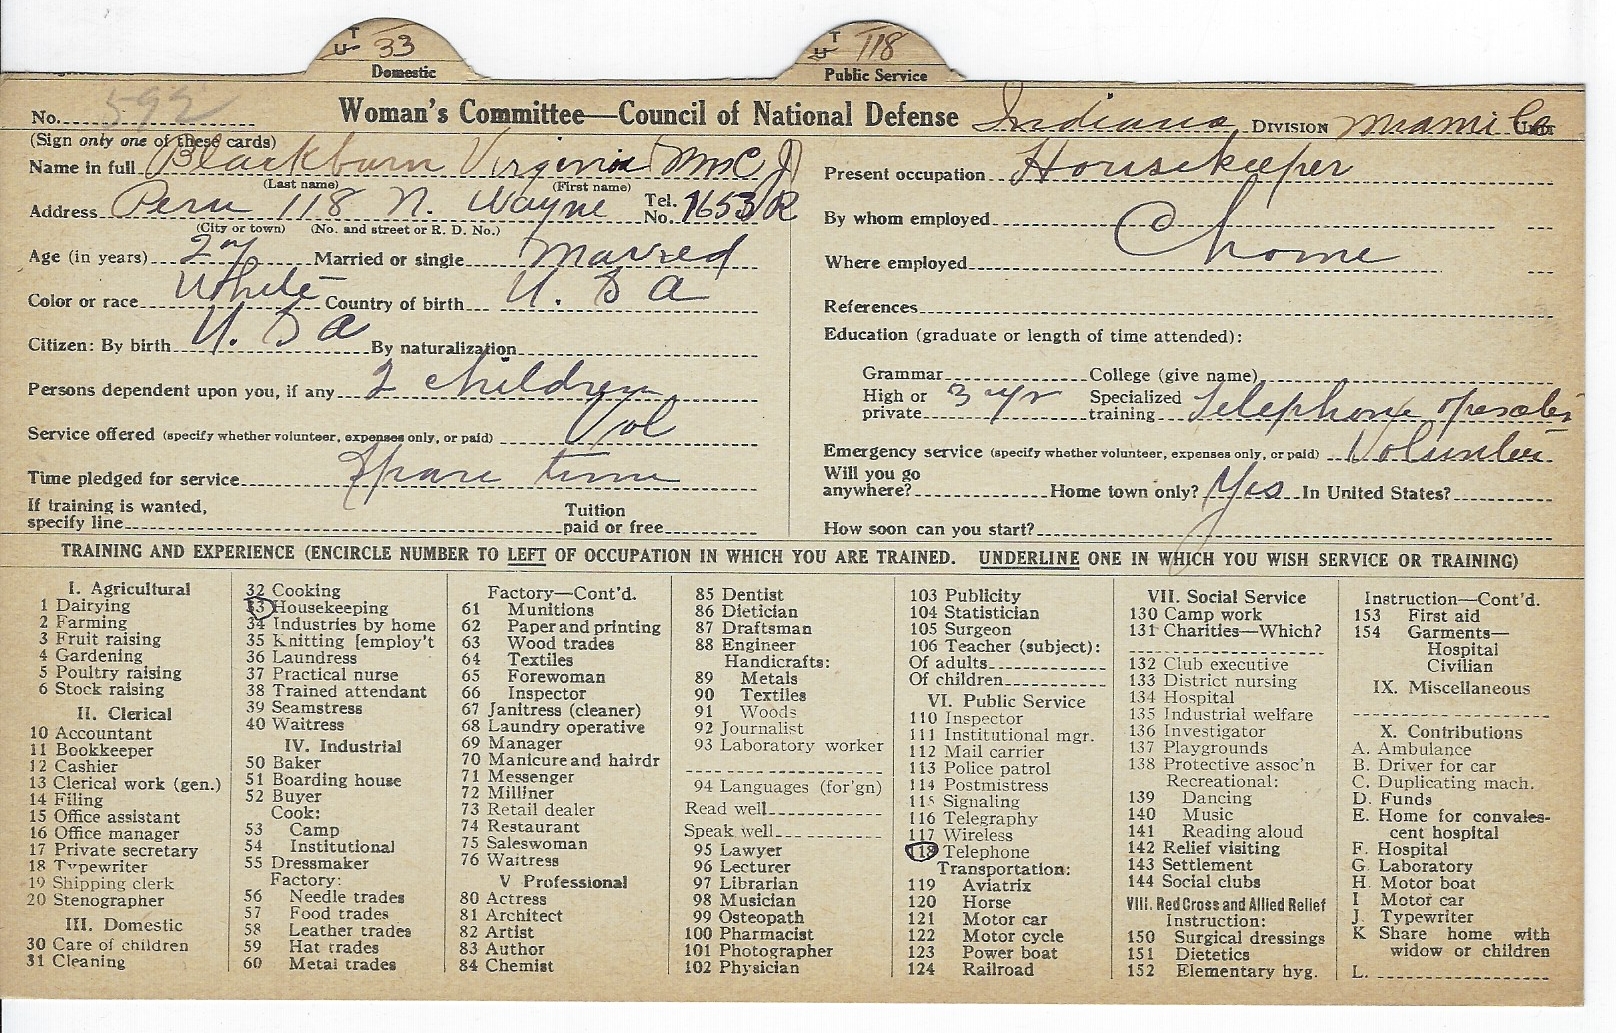 T U 33 T U 118
Domestic Public Service
No. 592 Woman's Committee—Council of National Defense Indiana DIVISION Miami Co Unit
(Sign only one of these cards)
Name in full Blackburn Virginia Mrs C J
(Last name) (First name)
Address Peru 118 N. Wayne Tel. No. 1653 R
(City or town) (No. and street or R. D. No.)
Age (in years) 27 Married or single Married
Color or race White Country of birth U. S a
Citizen: By birth U. S a By naturalization
Persons dependent upon you, if any 2 children
Service offered (specify whether volunteer, expenses only, or paid) Vol
Time pledged for service Spare time
If training is wanted, specify line Tuition paid or free
Present occupation Housekeeper
By whom employed
Where employed home
References
Education (graduate or length of time attended):
Grammar College (give name)
High or private 3 yr Specialized training Telephone operator
Emergency service (specify whether volunteer, expenses only, or paid) Volunteer
Will you go anywhere? Home town only? Yes In United States?
How soon can you start?
TRAINING AND EXPERIENCE (ENCIRCLE NUMBER TO LEFT OF OCCUPATION IN WHICH YOU ARE TRAINED. UNDERLINE ONE IN WHICH YOU WISH SERVICE OR TRAINING)
I. Agricultural
1 Dairying
2 Farming
3 Fruit raising
4 Gardening
5 Poultry raising
6 Stock raising
II. Clerical
10 Accountant
11 Bookkeeper
12 Cashier
13 Clerical work (gen.)
14 Filing
15 Office assistant
16 Office manager
17 Private secretary
18 Typewriter
19 Shipping clerk
20 Stenographer
III. Domestic
30 Care of children
31 Cleaning
32 Cooking
33 Housekeeping
34 Industries by home
35 Knitting [employ't
36 Laundress
37 Practical nurse
38 Trained attendant
39 Seamstress
40 Waitress
IV. Industrial
50 Baker
51 Boarding house
52 Buyer
Cook:
53 Camp
54 Institutional
55 Dressmaker
Factory:
56 Needle trades
57 Food trades
58 Leather trades
59 Hat trades
60 Metal trades
Factory—Cont'd.
61 Munitions
62 Paper and printing
63 Wood trades
64 Textiles
65 Forewoman
66 Inspector
67 Janitress (cleaner)
68 Laundry operative
69 Manager
70 Manicure and hairdr
71 Messenger
72 Milliner
73 Retail dealer
74 Restaurant
75 Saleswoman
76 Waitress
V Professional
80 Actress
81 Architect
82 Artist
83 Author
84 Chemist
85 Dentist
86 Dietician
87 Draftsman
88 Engineer
Handicrafts:
89 Metals
90 Textiles
91 Woods
92 Journalist
93 Laboratory worker
94 Languages (for'gn)
Read well
Speak well
95 Lawyer
96 Lecturer
97 Librarian
98 Musician
99 Osteopath
100 Pharmacist
101 Photographer
102 Physician
103 Publicity
104 Statistician
105 Surgeon
106 Teacher (subject):
Of adults
Of children
VI. Public Service
110 Inspector
111 Institutional mgr.
112 Mail carrier
113 Police patrol
114 Postmistress
115 Signaling
116 Telegraphy
117 Wireless
118 Telephone
Transportation:
119 Aviatrix
120 Horse
121 Motor car
122 Motor cycle
123 Power boat
124 Railroad
VII. Social Service
130 Camp work
131 Charities—Which?
132 Club executive
133 District nursing
134 Hospital
135 Industrial welfare
136 Investigator
137 Playgrounds
138 Protective assoc'n
Recreational:
139 Dancing
140 Music
141 Reading aloud
142 Relief visiting
143 Settlement
144 Social clubs
VIII. Red Cross and Allied Relief
Instruction:
150 Surgical dressings
151 Dietetics
152 Elementary hyg.
Instruction—Cont'd.
153 First aid
154 Garments—
Hospital
Civilian
IX. Miscellaneous
X. Contributions
A. Ambulance
B. Driver for car
C. Duplicating mach.
D. Funds
E. Home for convales-
cent hospital
F. Hospital
G. Laboratory
H. Motor boat
I Motor car
J. Typewriter
K Share home with
widow or children
L.